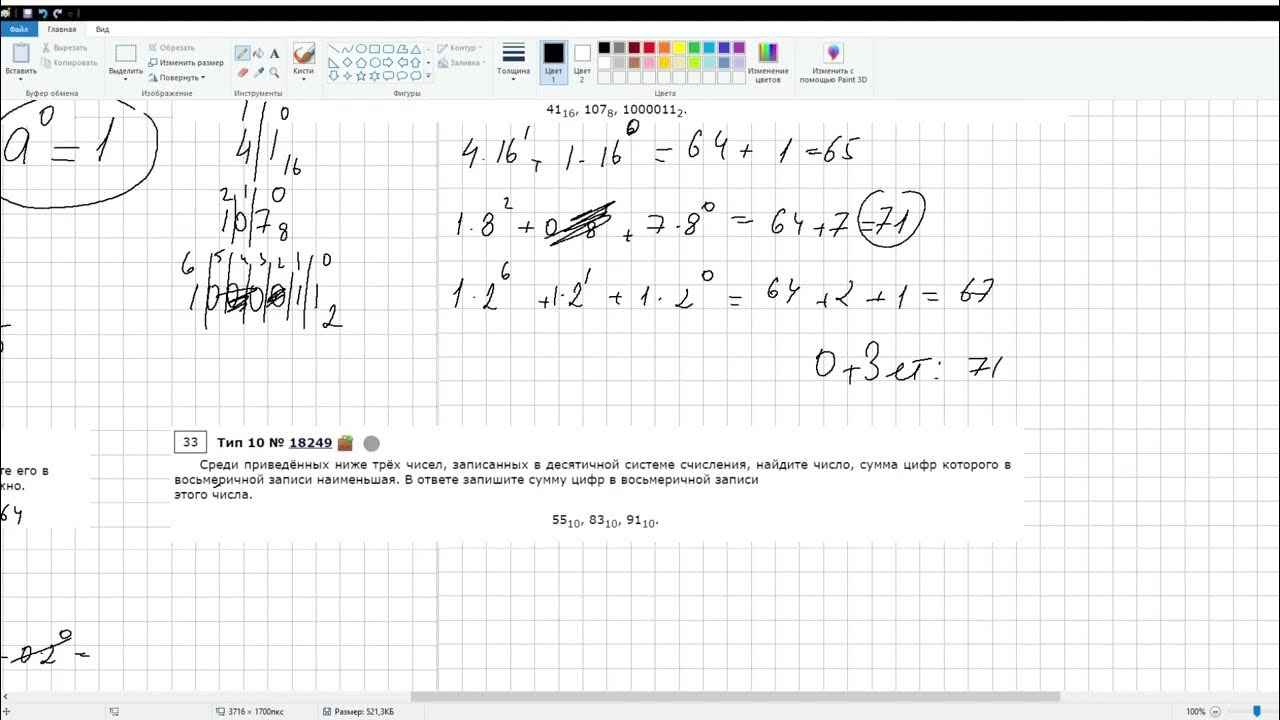 Файл Главная Вид
Вставить
Вырезать
Копировать
Буфер обмена
Выделить
Обрезать
Изменить размер
Повернуть
Изображение
Инструменты
Кисти
Фигуры
Контур
Заливка
Толщина
Цвет 1
Цвет 2
Цвета
Изменение цветов
Изменить с помощью Paint 3D
41₁₆, 107₈, 1000011₂.
a⁰ = 1
1 0
4 1 16
2 1 0
1 0 7 8
6 5 4 3 2 1 0
1 0 0 0 0 1 1 2
4·16¹ + 1·16⁰ = 64 + 1 = 65
1·8² + 0·8 + 7·8⁰ = 64 + 7 = 71
1·2⁶ + 1·2¹ + 1·2⁰ = 64 + 2 + 1 = 67
Ответ: 71
33 Тип 10 № 18249
Среди приведённых ниже трёх чисел, записанных в десятичной системе счисления, найдите число, сумма цифр которого в
восьмеричной записи наименьшая. В ответе запишите сумму цифр в восьмеричной записи
этого числа.
55₁₀, 83₁₀, 91₁₀.
те его в
жно.
64
0·2⁰ =
3716 × 1700пкс
Размер: 521,3КБ
100%